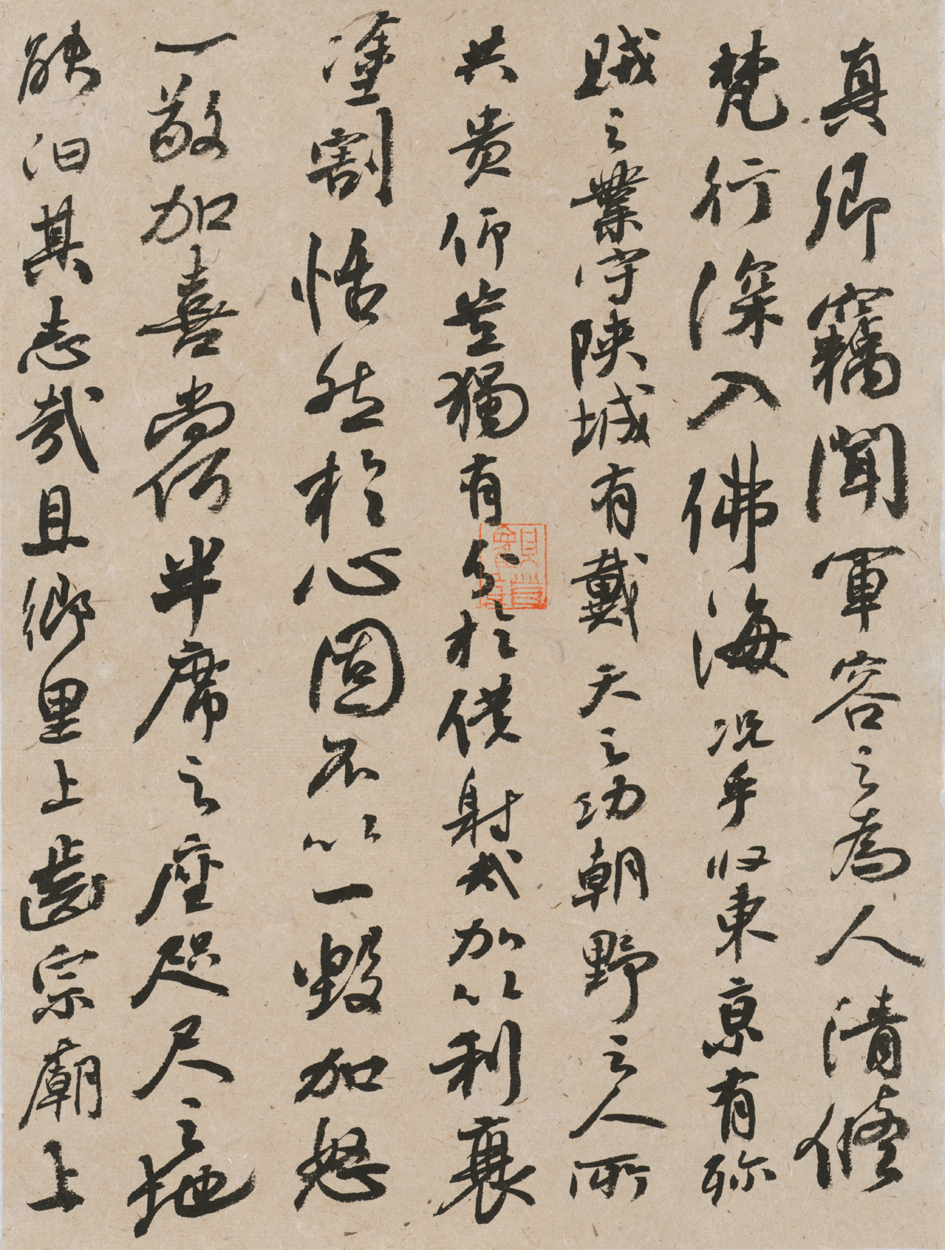 真卿竊聞軍容之為人清脩
梵行深入佛海況乎收東京有殄
賊之業守陝城有戴天之功朝野之人所
共貴仰豈獨有分於僕射哉加以利衰
塗割恬然於心固不以一毀加怒
一敬加喜尚何半席之座咫尺之地
能汩其志哉且鄉里上齒宗廟上